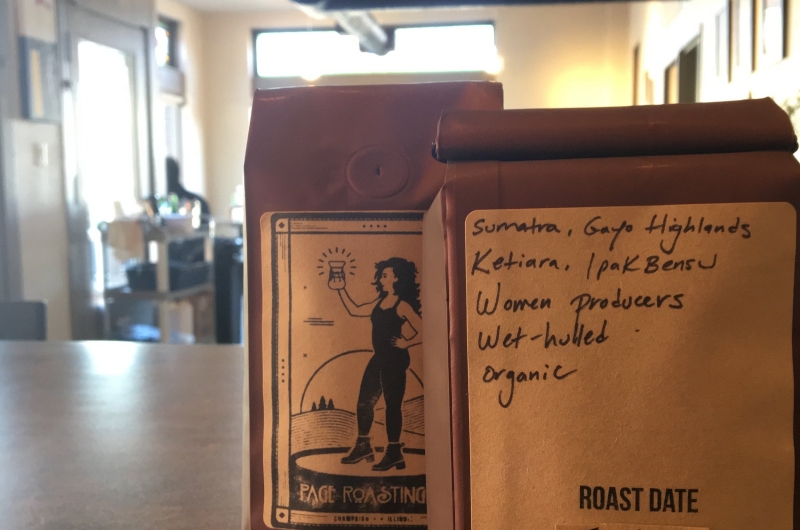 PAGE ROASTING
CHAMPAIGN ILLINOIS
Sumatra, Gayo Highlands
Ketiara, Ipak Bensu
Women producers
Wet-hulled
Organic
ROAST DATE